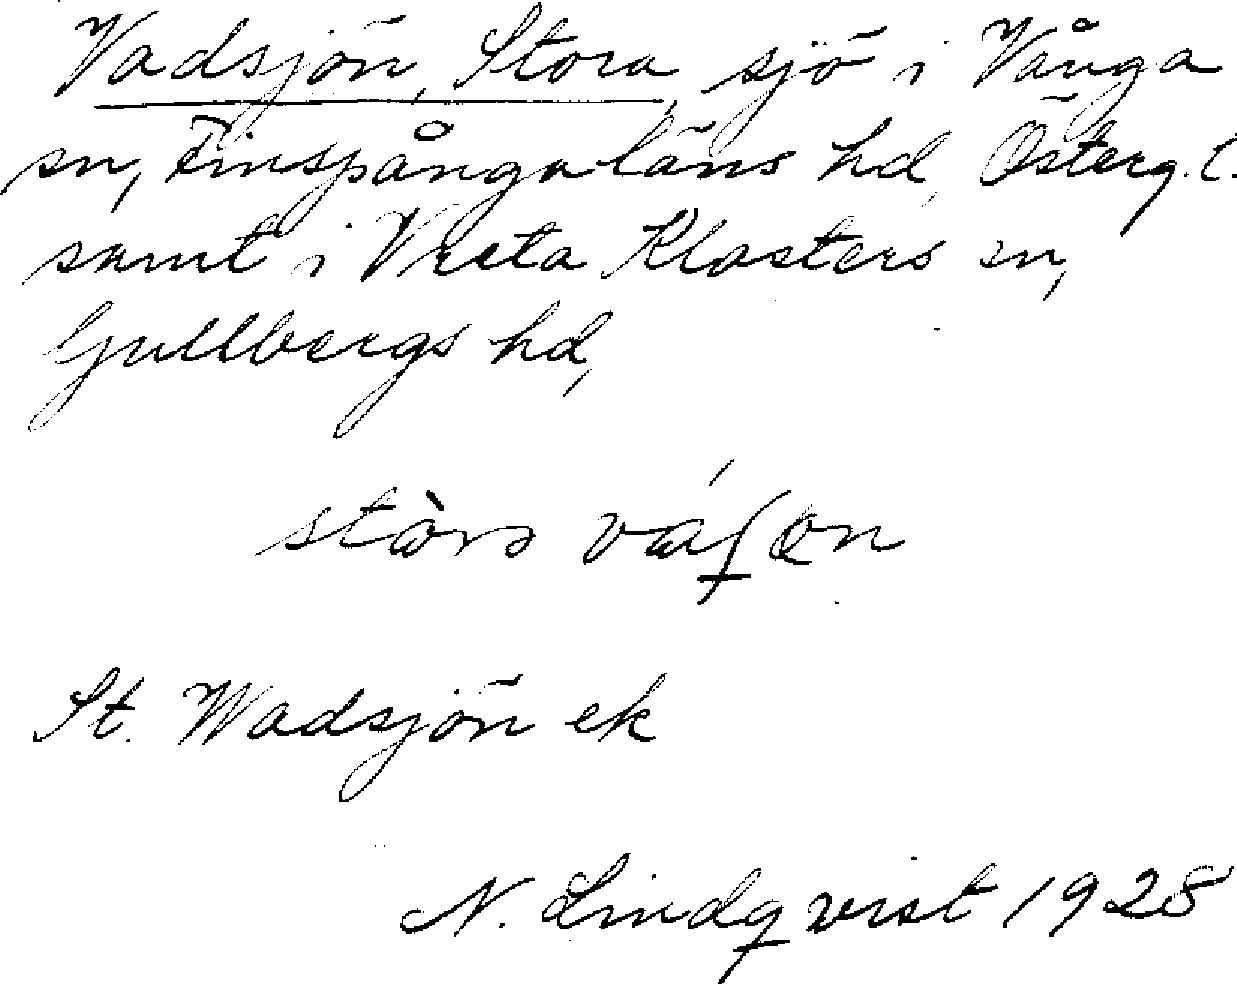 Vadsjön, Stora, sjö i Vånga
sn, Finspångaläns hd, Österg. l.
samt i Vreta Klosters sn,
Gullbergs hd,
St. Wadsjön ek
N. Lindqvist 1928